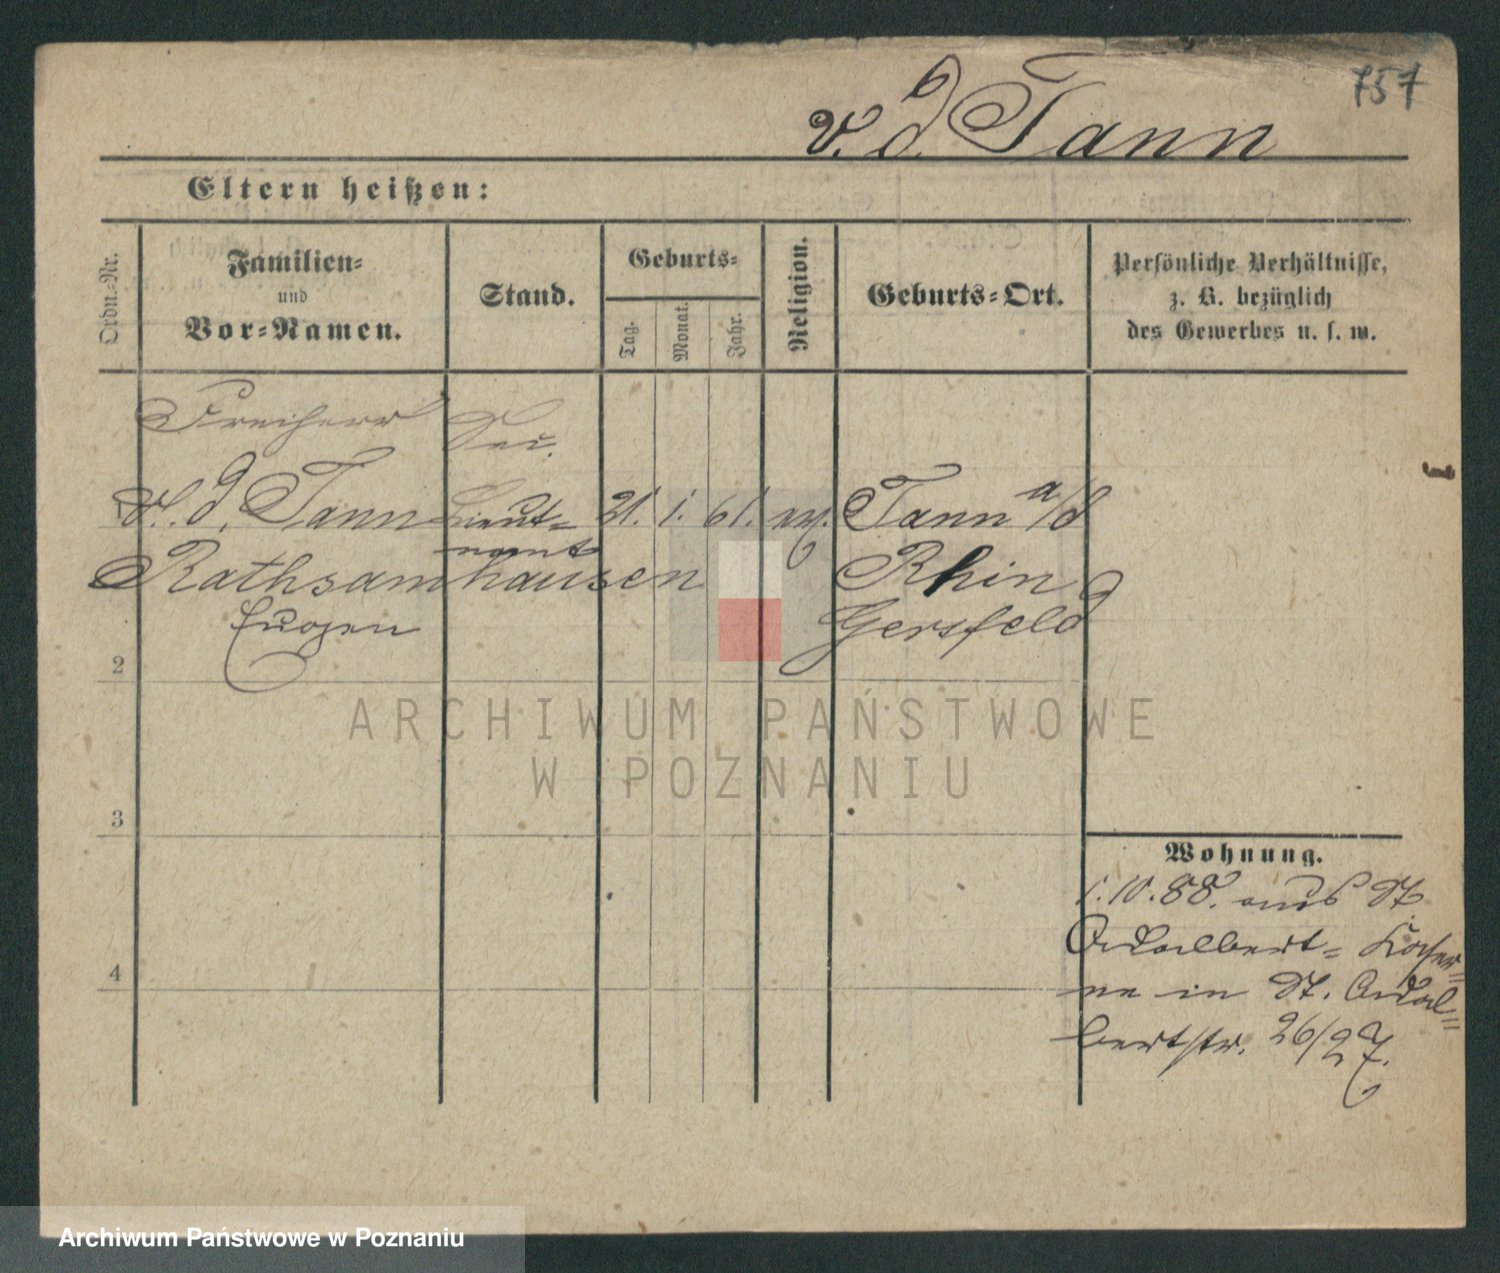 757
v. d. Tann
Eltern heißen:
Ordn.-Nr.
Familien-
und
Vor-Namen.
Stand.
Geburts-
Tag.
Monat.
Jahr.
Religion.
Geburts-Ort.
Persönliche Verhältnisse,
z. B. bezüglich
des Gewerbes u. s. w.
Freiherr Sec.
1 v. d. Tann Lieut- 21. 1. 61. ev. Tann a/d
nant
Rathsamhausen Rhin
Eugen Gersfeld
2
3
4
Wohnung.
1.10.88. aus St.
Adalbert- Kaser-
ne in St. Adal-
bertstr. 26/27.
ARCHIWUM PAŃSTWOWE
W POZNANIU
Archiwum Państwowe w Poznaniu